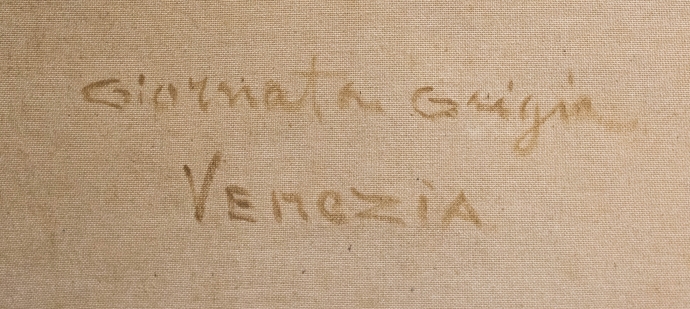 Giornata Grigia
VENEZIA